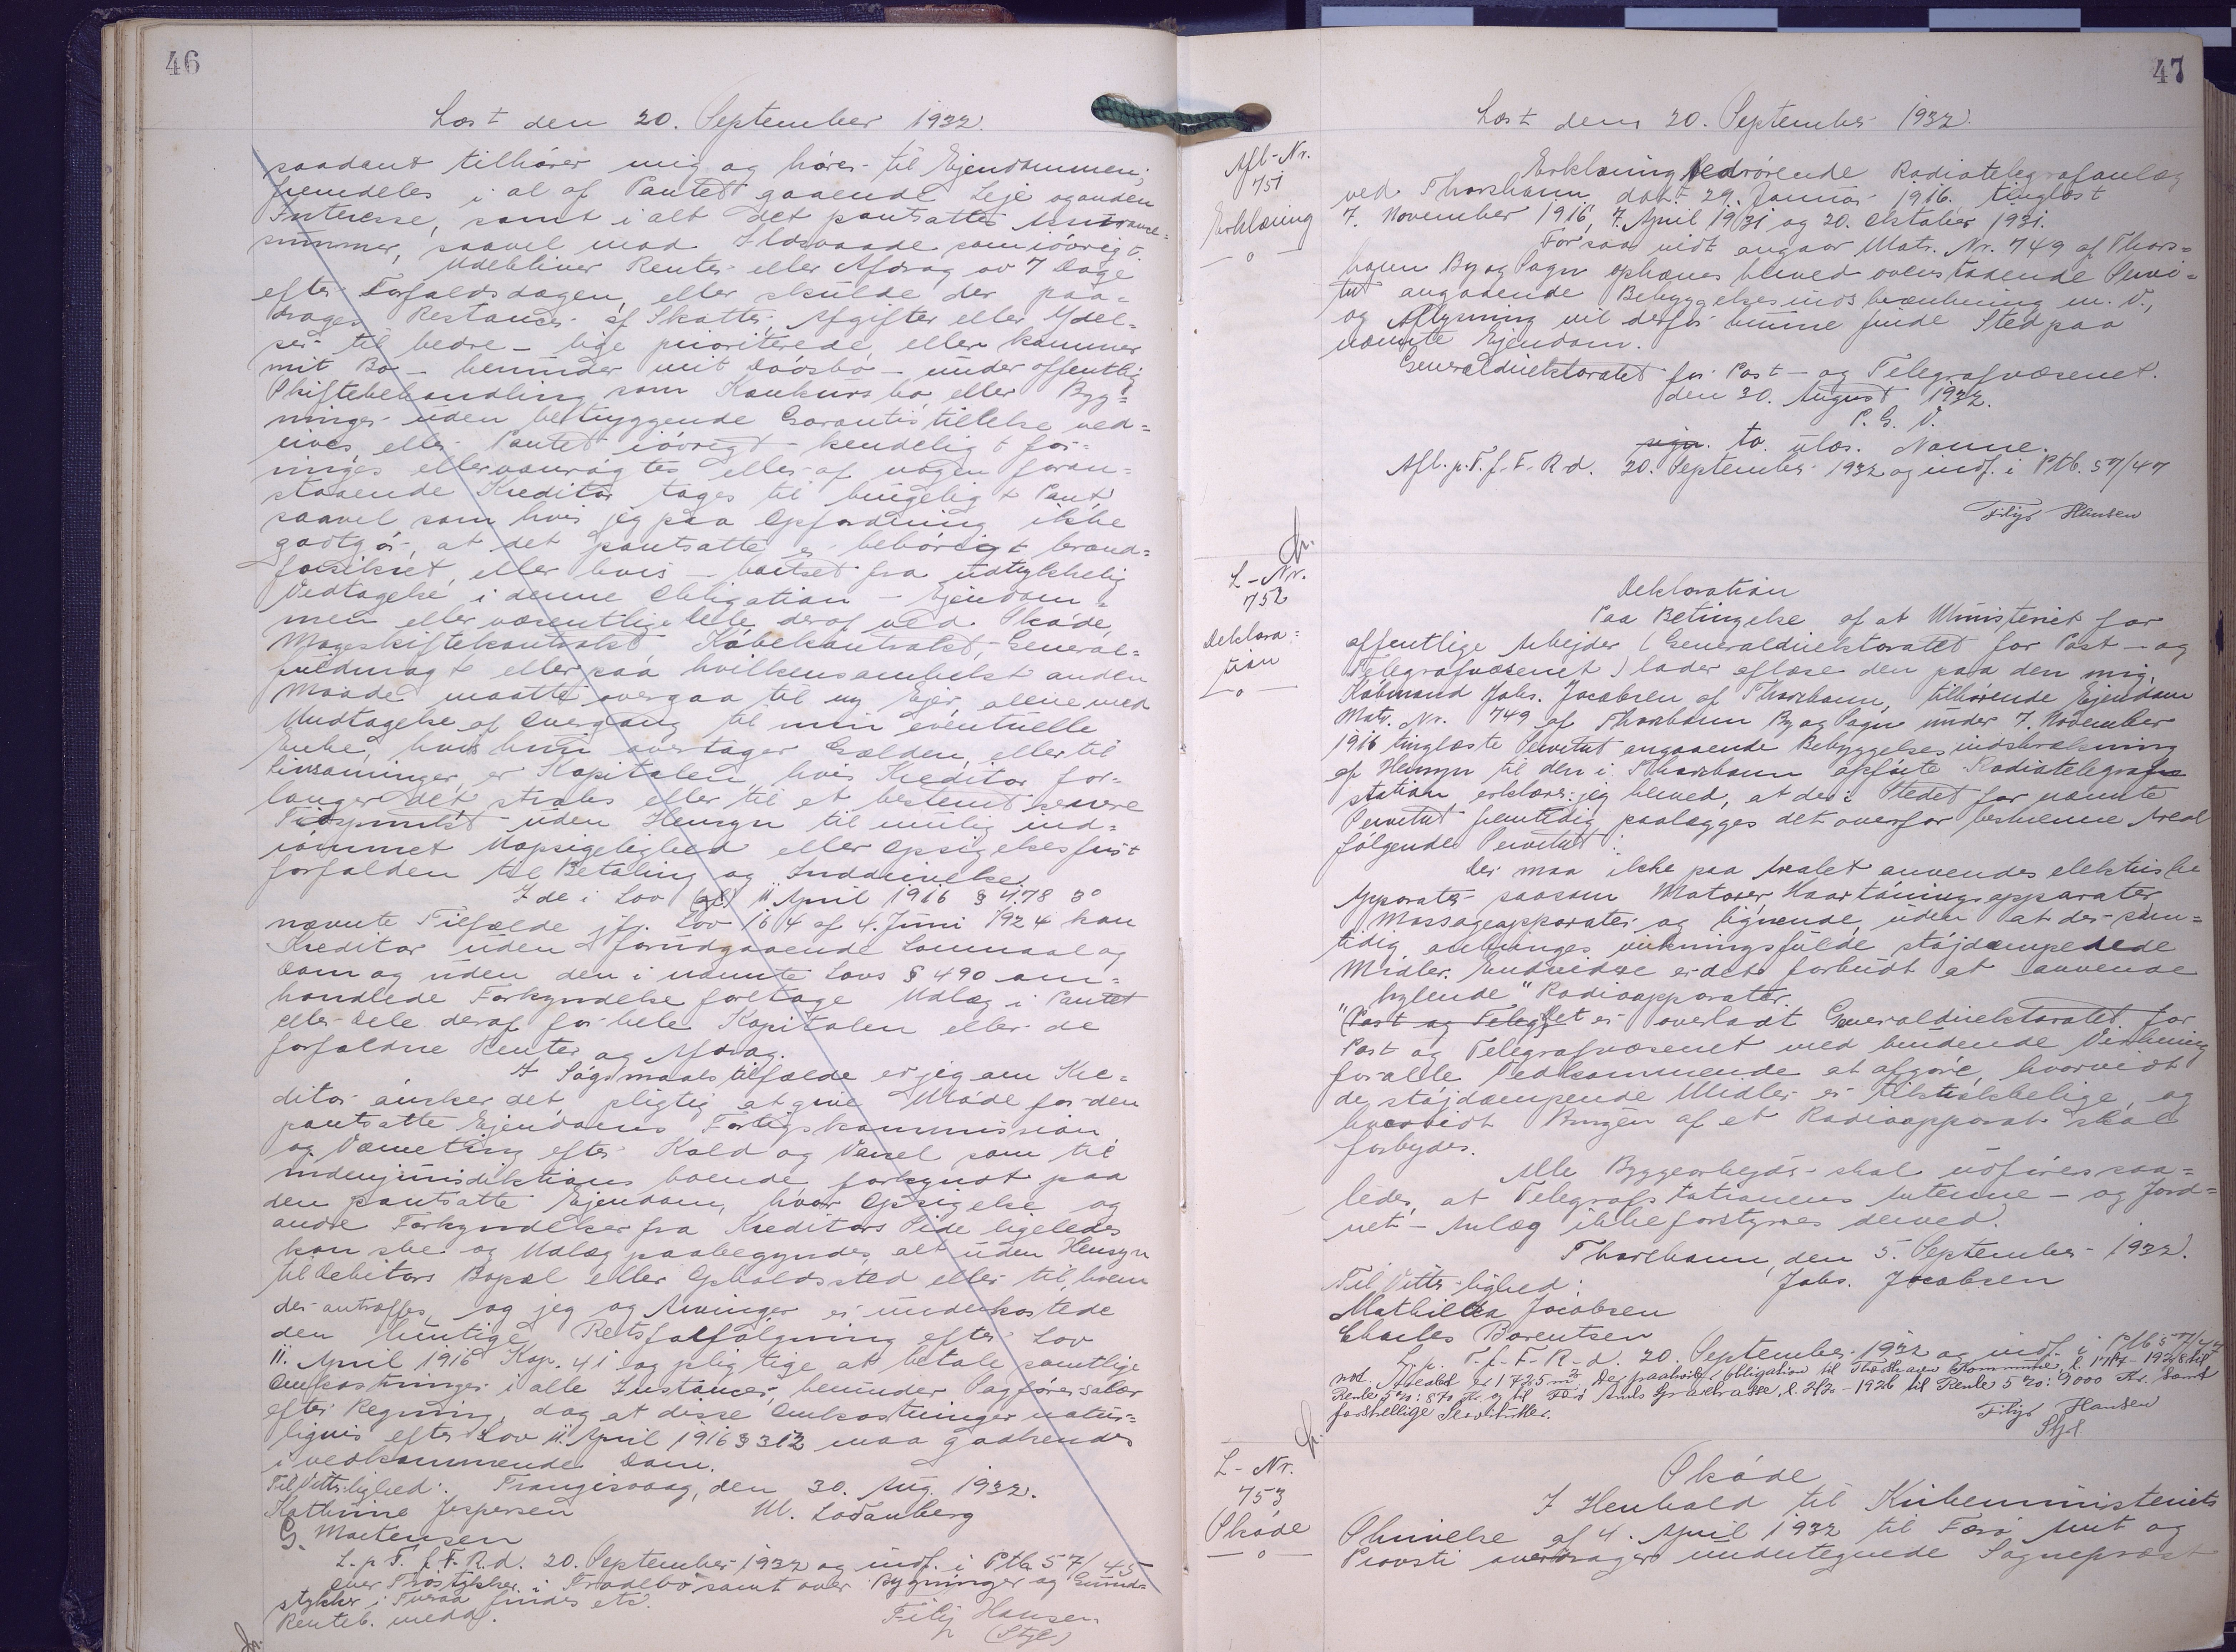 46
Læst den 20. September 1932.
saadant tilhører mig og hører til Ejendommen;
fremdeles i al af Pantet gaaende Leje og anden
Interesse, samt i alt det pantsattes Assurance-
summer, saavel mod Ildsvaade som iøvrigt.
Udebliver Renter eller Afdrag ov 7 Dage
efter Forfaldsdagen, eller skulde der paa-
drages Restancer af Skatter, Afgifter eller Ydel-
ser til bedre - lige prioriterede, eller kommer
mit Bo - herunder mit Dødsbo - under offentlig
Skiftebehandling som Konkursbo, eller Byg-
ninger uden betryggende Garantis tillelse ned-
rives, eller Pantet iøvrigt kendeligt for-
ringes eller vanrøgtes eller af nogen foran-
staaende Kreditor tages til brugeligt Pant,
saavel som hvis jeg paa Opfordring ikke
godtgør, at det pantsatte er behørigt brand-
forsikret, eller hvis - bortset fra udtrykkelig
Vedtagelse i denne Obligation - Ejendom-
men eller væsentlige Dele deraf ved Skøde,
Mageskiftekontrakt, Købekontrakt, General-
fuldmagt eller paa hvilkensomhelst anden
Maade maatte overgaa til ny Ejer, alene med
Undtagelse af Overgang til min eventuelle
Enke, hvis hun overtager Gælden, eller til
Livsarvinger, er Kapitalen, hvis Kreditor for-
langer det straks eller til et bestemt senere
Tidspunkt uden Hensyn til mulig ind-
rømmet Uopsigelighed eller Opsigelsesfrist
forfalden til Betaling og Inddrivelse.
I de i Lov (gl) 11 April 1916 § 478 3°
nævnte Tilfælde jfr. Lov 164 af 4. Juni 1924 kan
Kreditor uden forudgaaende Lovmaal og
Dom og uden den i nævnte Lovs § 490 om-
handlede Forkyndelse foretage Udlæg i Pantet
eller Dele deraf for hele Kapitalen eller de
forfaldne Renter og Afdrag.
I Søgsmaalstilfælde er jeg om Kre-
ditor ønsker det, pligtig at give Møde for den
pantsatte Ejendoms Forligskommission
og Værneting efter Kald og Varsel som til
indenjurisdiktions boende forkyndt paa
den pantsatte Ejendom, hvor Opsigelse og
andre Forkyndelser fra Kreditors Side ligeledes
kan ske og Udlæg paabegyndes, alt uden Hensyn
til Debitors Bopæl eller Opholdssted eller til, hvem
der antræffes, og jeg og Arvinger er underkastede
den hurtige Retsfalfølgning efter Lov
11. April 1916 Kap. 41 og pligtige at betale samtlige
Omkostninger i alle Instancer, herunder Sagførersalær
efter Regning, dog at disse Omkostninger natur-
ligvis efter Lov 11. April 1916 § 312 maa godkendes
i vedkommende Dom.
Til Vitterlighed: Frangisvaag, den 30. Aug. 1932.
Kathrine Jespersen M. Lodanberg
G. Mortensen
L. p T. f. F. R.d. 20. September 1932 og indf. i Ptb 57/45
over Træstykker i Frodebø samt over Bygninger og Grund-
stykker i Tveraa findes etc.
Renteb. medd.
Filip Hansen
(Stfl)
47
Læst den 20. September 1932.
Afl-Nr.
751
Erklæring
—o—
Erklæring vedrørende Radiotelegrafanlæg
ved Thorshavn, dat. 29. Januar 1916. tinglæst
7. November 1916, 7. April 1931 og 20. Oktober 1931.
For saa vidt angaar Matr. Nr. 749 af Thors-
havn By og Sogn ophæves herved ovenstaaende Servi-
tut angaaende Bebyggelsesindskrænkning m. V.,
og Aflysning vil derfor kunne finde Sted paa
nævnte Ejendom.
Generaldirektoratet for Post- og Telegrafvæsenet.
den 30. August 1932.
P. G. V.
sign. to. ulæs. Navne.
Afl. p. T. f. F. R.d. 20. September 1932 og indf. i Ptb. 57/47
Filip Hansen
L-Nr.
752
Deklara-
tion
—o—
Deklaration
Paa Betingelse af at Ministeriet for
offentlige Arbejder (Generaldirektoratet for Post- og
Telegrafvæsenet) lader aflæse den paa den mig,
Købmand Johs. Jacobsen af Thorshavn, tilhørende Ejendom
Matr. Nr. 749 af Thorshavn By og Sogn under 7. November
1916 tinglæste Servitut angaaende Bebyggelsesindskrænkning
af Hensyn til den i Thorshavn opførte Radiotelegraf
station erklærer jeg herved, at der i Stedet for nævnte
Servitut fremtidig paalægges det overfor beskrevne Areal
følgende Servitut:
Der maa ikke paa Arealet anvendes elektriske
Apparater saasom Motorer, Haartørringsapparater,
Massageapparater og lignende, uden at der sam-
tidig anbringes virkningsfulde støjdæmpedede
Midler. Endvidere er det forbudt at anvende
"hylende" Radioapparater.
(Post og Telegr Det er overladt Generaldirektoratet for
Post og Telegrafvæsenet med bindende Virkning
for alle Vedkommende at afgøre, hvorvidt
de støjdæmpende Midler er tilstrækkelige, og
hvorvidt Brugen af et Radioapparat skal
forbydes.
Alle Byggearbejder skal udføres saa-
ledes, at Telegrafstationens Antenne- og Jord-
net-Anlæg ikke forstyrres derved.
Thorshavn, den 5. September 1932.
Til Vitterlighed: Johs. Jacobsen
Mathilda Jacobsen
Charles Barentsen
L. p. T. f. F. R.d. 20. September 1932 og indf. i Ptb 57/47
not. Arealet er 1725 m². Der paahviler Obligation til Thorshavn Kommune, l. 17/7-1928 til
Rente 5%: 870 Kr. og til Færø Amts Sparekasse, l. 2/30-1926 til Rente 5%: 9000 Kr. samt
forskellige Servitutter.
Filip Hansen
Stfl
L-Nr.
753
Skøde
—o—
Skøde
I Henhold til Kirkeministeriets
Skrivelse af 4. April 1932 til Færø Amt og
Provsti overdrager undertegnede Sognepræst